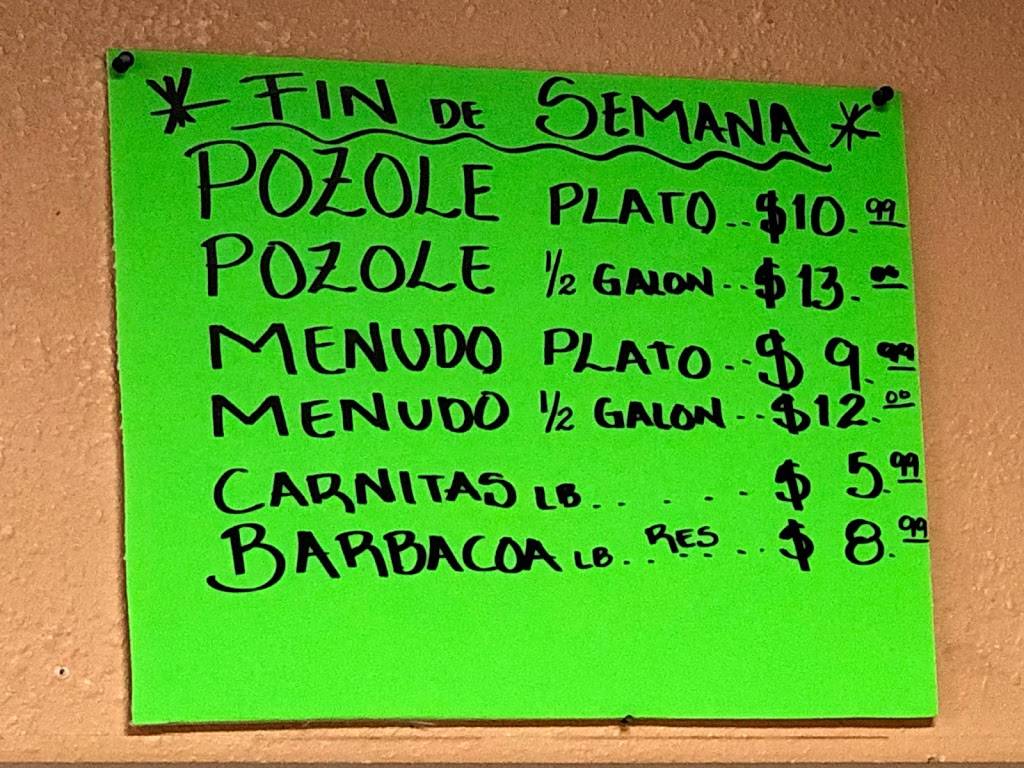 * FIN DE SEMANA *
POZOLE PLATO..$10.99
POZOLE 1/2 GALON..$13.00
MENUDO PLATO..$9.99
MENUDO 1/2 GALON..$12.00
CARNITAS LB......$5.99
BARBACOA LB..RES..$8.99